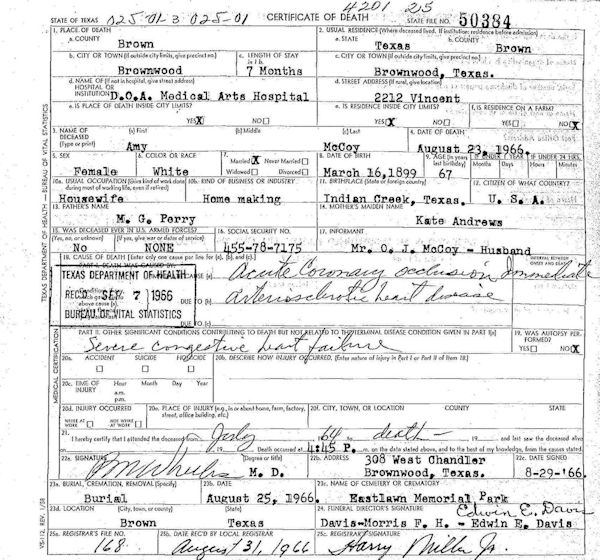 4201 215
STATE OF TEXAS 025-01-3 025-01 CERTIFICATE OF DEATH STATE FILE NO. 50384
1. PLACE OF DEATH 2. USUAL RESIDENCE (Where deceased lived. If institution: residence before admission)
a. COUNTY a. STATE b. COUNTY
Brown Texas Brown
b. CITY OR TOWN (If outside city limits, give precinct no.) c. LENGTH OF STAY in 1 b. c. CITY OR TOWN (If outside city limits, give precinct no.)
Brownwood 7 Months Brownwood, Texas.
d. NAME OF (If not in hospital, give street address) HOSPITAL OR INSTITUTION d. STREET ADDRESS (If rural, give location)
D.O.A. Medical Arts Hospital 2212 Vincent
e. IS PLACE OF DEATH INSIDE CITY LIMITS? e. IS RESIDENCE INSIDE CITY LIMITS? f. IS RESIDENCE ON A FARM?
YES X NO YES X NO YES NO X
3. NAME OF DECEASED (Type or print) (a) First (b) Middle (c) Last 4. DATE OF DEATH
Amy McCoy August 23, 1966.
5. SEX 6. COLOR OR RACE 7. Married X Never Married Widowed Divorced 8. DATE OF BIRTH 9. AGE (In years last birthday) IF UNDER 1 YEAR IF UNDER 24 HRS.
Months Days Hours Min.
Female White March 16,1899 67
10a. USUAL OCCUPATION (Give kind of work done during most of working life, even if retired) 10b. KIND OF BUSINESS OR INDUSTRY 11. BIRTHPLACE (State or foreign country) 12. CITIZEN OF WHAT COUNTRY?
Housewife Home making Indian Creek, Texas U. S. A.
13. FATHER'S NAME 14. MOTHER'S MAIDEN NAME
M. G. Perry Kate Andrews
15. WAS DECEASED EVER IN U.S. ARMED FORCES? 16. SOCIAL SECURITY NO. 17. INFORMANT
(Yes, no, or unknown) (If yes, give war or dates of service)
No NONE 455-78-7175 Mr. O. J. McCoy - Husband
18. CAUSE OF DEATH [Enter only one cause per line for (a), (b), and (c).] INTERVAL BETWEEN ONSET AND DEATH
PART I. DEATH WAS CAUSED BY:
Acute Coronary occlusion Immediate
TEXAS DEPARTMENT OF HEALTH
REC'D SEP 7 1966
BUREAU OF VITAL STATISTICS
DUE TO (b) arteriosclerotic heart disease
DUE TO (c)
PART II. OTHER SIGNIFICANT CONDITIONS CONTRIBUTING TO DEATH BUT NOT RELATED TO THE TERMINAL DISEASE CONDITION GIVEN IN PART I(a) 19. WAS AUTOPSY PERFORMED?
Severe congestive heart failure YES NO X
20a. ACCIDENT SUICIDE HOMICIDE 20b. DESCRIBE HOW INJURY OCCURRED. (Enter nature of injury in Part I or Part II of Item 18.)
20c. TIME OF INJURY Hour Month Day Year
a.m.
p.m.
20d. INJURY OCCURRED 20e. PLACE OF INJURY (e.g., in or about home, farm, factory, street, office building, etc.) 20f. CITY, TOWN, OR LOCATION COUNTY STATE
WHILE AT WORK NOT WHILE AT WORK
21. I hereby certify that I attended the deceased from July 19 64 to death 19 and last saw the deceased alive
on 19 Death occurred at 4:45 P. m. on the date stated above, and to the best of my knowledge, from the causes stated.
22a. SIGNATURE (Degree or title) 22b. ADDRESS 22c. DATE SIGNED
M. D. 308 West Chandler Brownwood, Texas. 8-29-'66.
23a. BURIAL, CREMATION, REMOVAL (Specify) 23b. DATE 23c. NAME OF CEMETERY OR CREMATORY
Burial August 25, 1966. Eastlawn Memorial Park
23d. LOCATION (City, town, or county) (State) 24. FUNERAL DIRECTOR'S SIGNATURE Edwin E. Davis
Brown Texas Davis-Morris F. H. - Edwin E. Davis
25a. REGISTRAR'S FILE NO. 25b. DATE REC'D BY LOCAL REGISTRAR 25c. REGISTRAR'S SIGNATURE
168 August 31, 1966 Harry Miller Jr.
TEXAS DEPARTMENT OF HEALTH — BUREAU OF VITAL STATISTICS
MEDICAL CERTIFICATION
VS-112, REV. 1/58